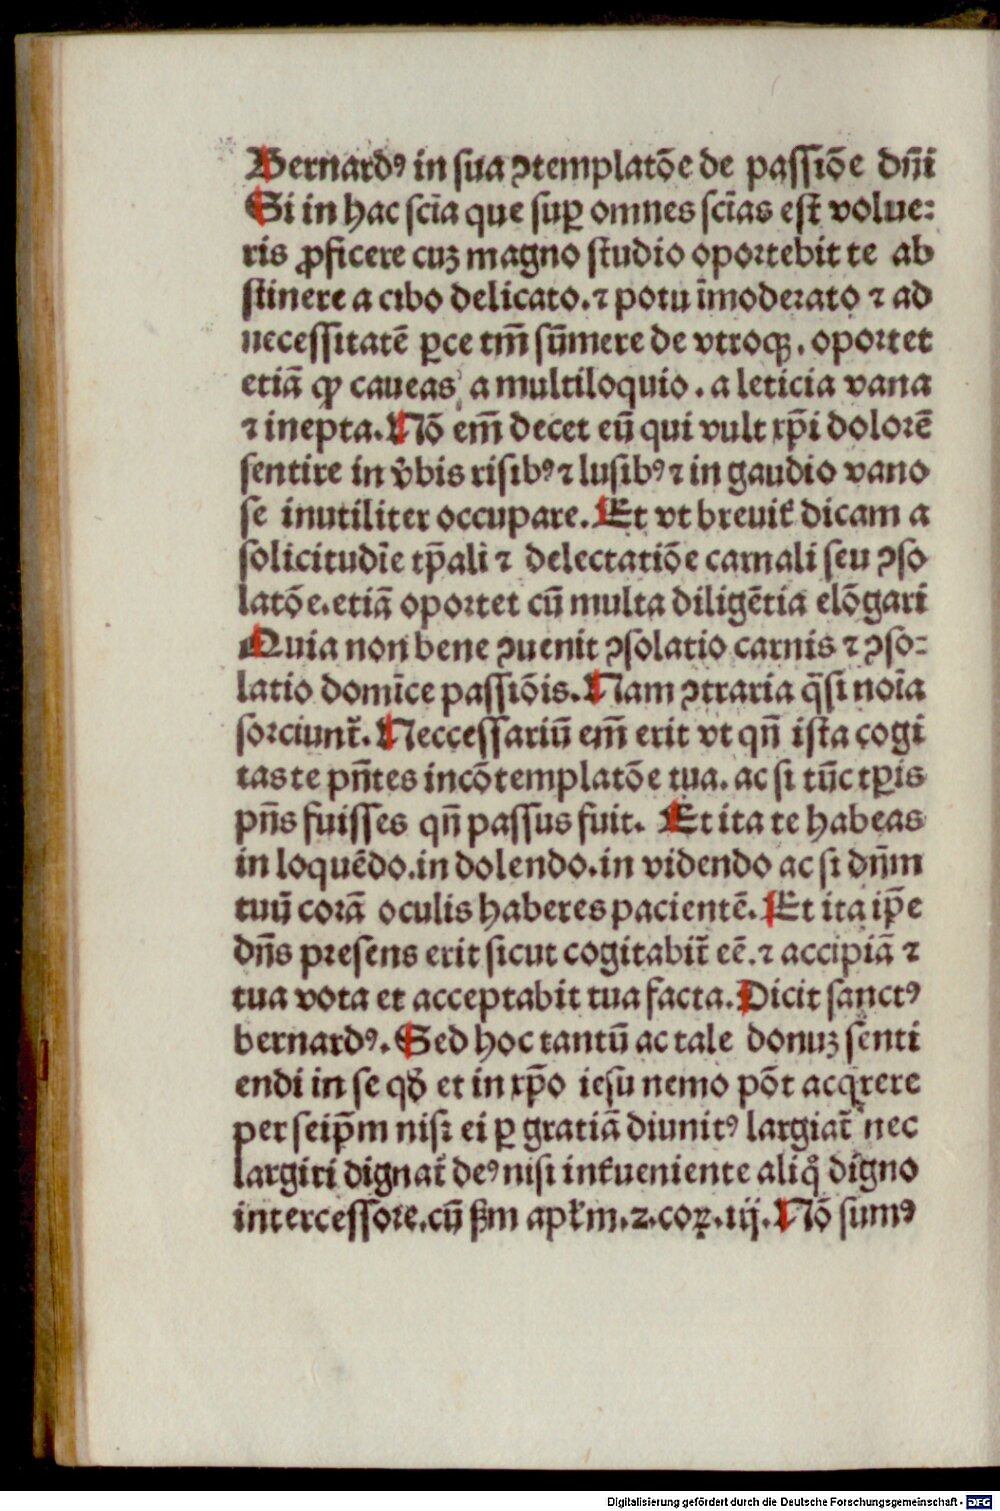 Bernardꝰ in sua ꝯtemplatōe de passiōe dn̄i
Si in hac scīa que suꝑ omnes scīas est volue:
ris ꝓficere cuꝫ magno studio oportebit te ab
stinere a cibo delicato. ⁊ potu īmoderato ⁊ ad
necessitatē ꝑce tm̄ sūmere de vtroqꝫ. oportet
etiā ꝙ caueas a multiloquio. a leticia vana
⁊ inepta. Nō em̄ decet eū qui vult xp̄i dolorē
sentire in v̄bis risibꝰ ⁊ lusibꝰ ⁊ in gaudio vano
se inutiliter occupare. Et vt breuit̄ dicam a
solicitudīe tp̄ali ⁊ delectatiōe carnali seu ꝯso
latōe. etiā oportet cū multa diligētia elōgari
Quia non bene ꝯuenit ꝯsolatio carnis ⁊ ꝯso:
latio domīce passiōis. Nam ꝯtraria q̄si noīa
sorciunt̄. Neccessariū em̄ erit vt qn̄ ista cogi
tas te pn̄tes incōtemplatōe tua. ac si tūc tꝑis
pn̄s fuisses qn̄ passus fuit. Et ita te habeas
in loquēdo. in dolendo. in videndo ac si dn̄m
tuū corā oculis haberes pacientē. Et ita ip̄e
dn̄s presens erit sicut cogitabit̄ eē. ⁊ accipiā ⁊
tua vota et acceptabit tua facta. Dicit sanctꝰ
bernardꝰ. Sed hoc tantū ac tale donuꝫ senti
endi in se qđ et in xp̄o iesu nemo pōt acqͥrere
per seip̄m nisi ei ꝑ gratiā diunitꝰ largiat̄ nec
largiri dignat̄ deꝰ nisi int̄ueniente aliqͦ digno
intercessore. cū ẜm apl̄m. 2. coꝝ. iij. Nō sumꝰ
Digitalisierung gefördert durch die Deutsche Forschungsgemeinschaft - DFG